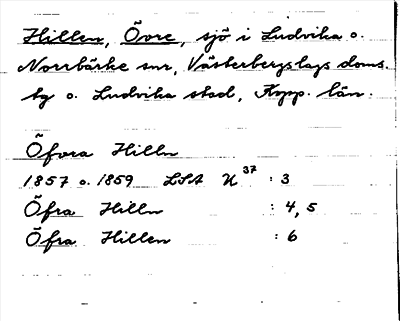 Hillen, Övre, sjö i Ludvika o.
Norrbärke snr, Västerbergslags doms.
hg o. Ludvika stad, Kopp. län.
Öfora Hilln
1857 o. 1859 LSA U 37 : 3
Öfra Hilln : 4, 5
Öfra Hillen : 6